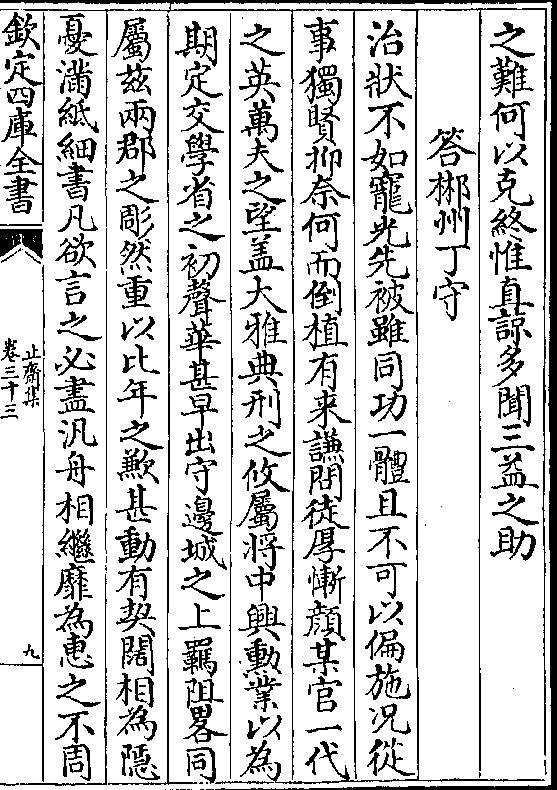 之難何以克終惟直諒多聞三益之助
答郴州丁守
治狀不如寵光先被雖同功一體且不可以偏施况從
事獨賢抑奈何而倒植有来謙問徒厚慚顔某官一代
之英萬夫之望盖大雅典刑之攸屬將中興勲業以為
期定交學省之初聲華甚早出守邊城之上羈阻畧同
屬兹兩郡之彫然重以比年之歉甚動有契闊相為隱
憂滿紙細書凡欲言之必盡汎舟相繼靡為惠之不周
欽定四庫全書
止齋集
卷三十三
九